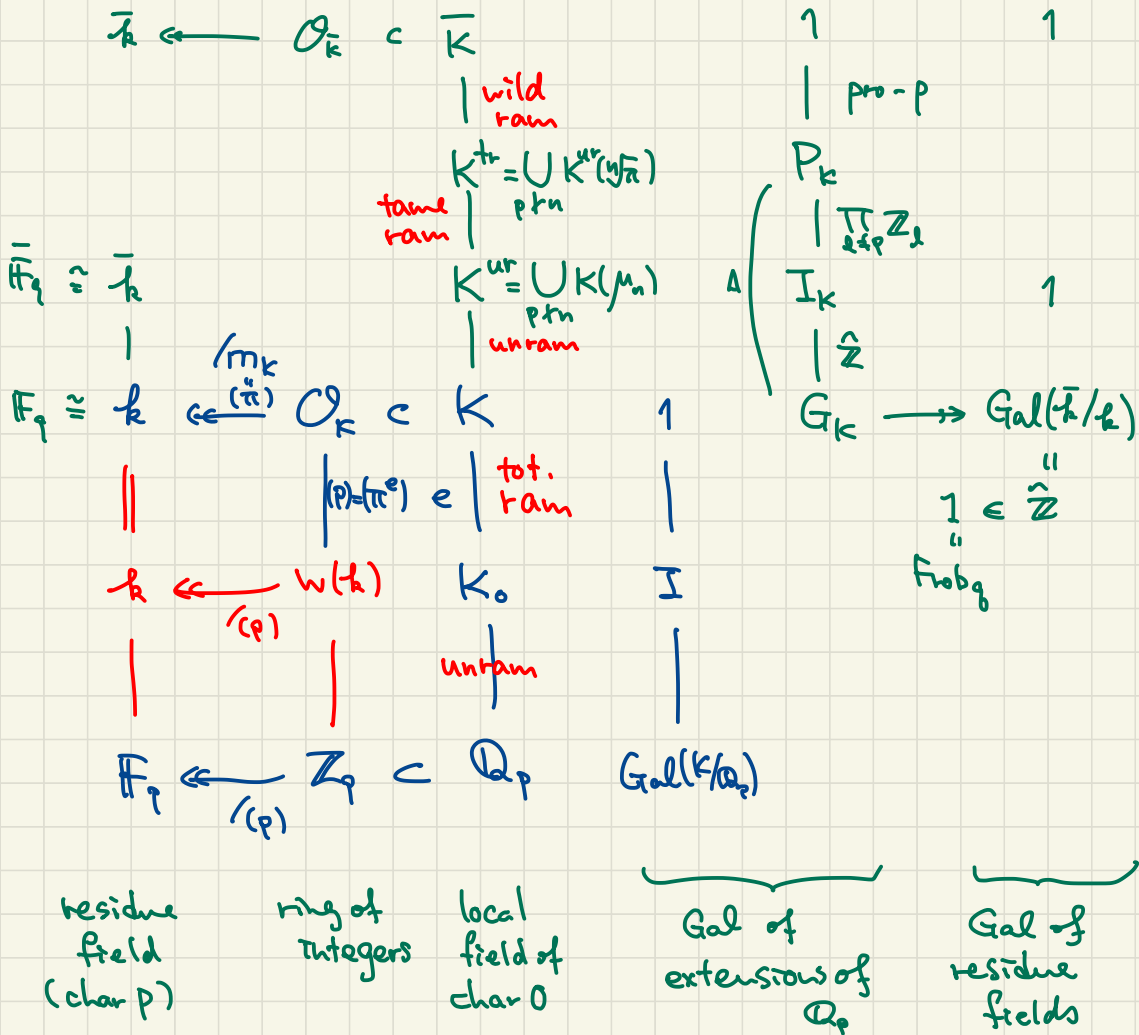 k̄ ↞ O_K̄ ⊂ K̄ 1 1
| wild ram | pro-p
K^tr = ⋃_{p∤n} K^ur(ⁿ√π) P_K
tame ram | | ∏_{ℓ≠p} ℤ_ℓ
F̄_q ≅ k̄ K^ur = ⋃_{p∤n} K(μ_n) Δ I_K 1
| | unram | ℤ̂
/m_K
"
(π)
F_q ≅ k ↞ O_K ⊂ K 1 G_K ↠ Gal(k̄/k)
|| | (p)=(π^e) e | tot. ram | "
1 ∈ ℤ̂
"
Frob_q
k ↞ W(k) K_0 I
/(p)
| | unram |
F_p ↞ ℤ_p ⊂ ℚ_p Gal(K/ℚ_p)
/(p)
residue field (char p)
ring of integers
local field of char 0
Gal of extensions of ℚ_p
Gal of residue fields